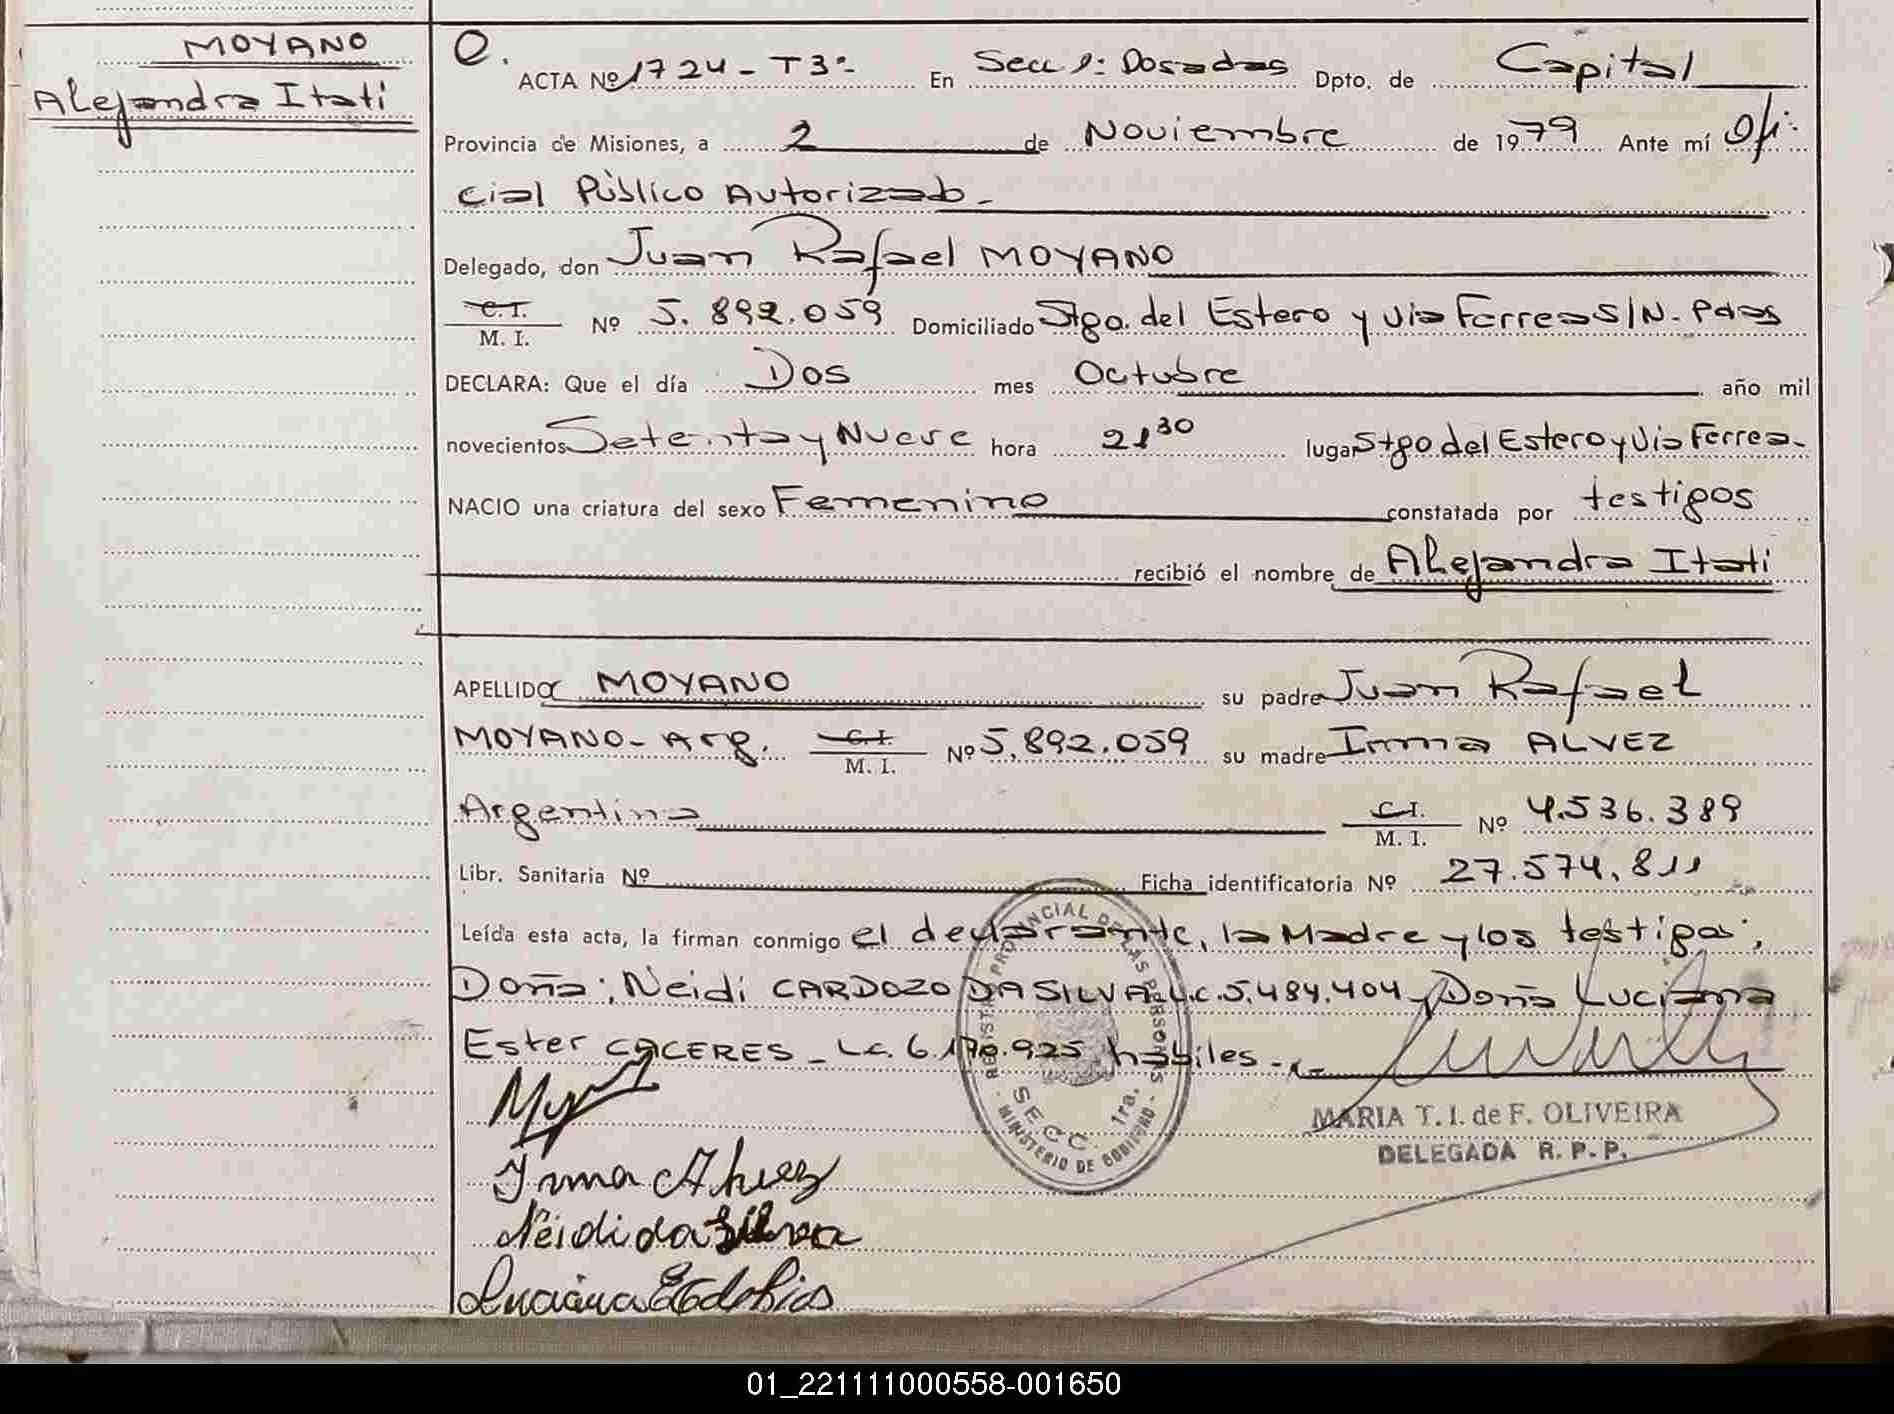 MOYANO
Alejandra Itati
ACTA Nº 1724 - T3º- En Secc 1: Posadas Dpto. de Capital
Provincia de Misiones, a 2 de Noviembre de 1979 Ante mí Ofi-
cial Público Autorizado -
Delegado, don Juan Rafael MOYANO
C. I.
M. I. Nº 5.892.059 Domiciliado Stgo. del Estero y Via Ferrea S/N. Pdas
DECLARA: Que el día Dos mes Octubre año mil
novecientos Setenta y Nueve hora 21 30 lugar Stgo del Estero y Via Ferrea.
NACIO una criatura del sexo Femenino constatada por testigos
recibió el nombre de Alejandra Itati
APELLIDO MOYANO su padre Juan Rafael
MOYANO - Arg. C. I. M. I. Nº 5.892.059 su madre Irma ALVEZ
Argentina C. I. M. I. Nº 4.536.389
Libr. Sanitaria Nº Ficha identificatoria Nº 27.574.811
Leída esta acta, la firman conmigo el declarante, la Madre y los testigos;
Doña: Neidi CARDOZO DA SILVA L.C. 5.484.404 y Doña Luciana
Ester CACERES - L.C. 6.170.925 habiles -
REGIST. PROVINCIAL DE LAS PERSONAS
SECC. 1ra.
- MINISTERIO DE GOBIERNO -
MARIA T. I. de F. OLIVEIRA
DELEGADA R. P. P.
Irma Alvez
Neidi da Silva
Luciana E
01_221111000558-001650